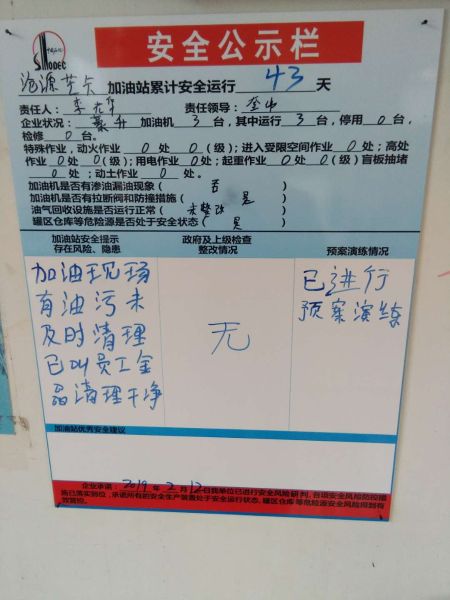 SINOPEC
安全公示栏
加油站累计安全运行 43 天
责任人： 责任领导：
企业状况： 加油机 3 台，其中运行 3 台，停用 0 台，
检修 0 台。
特殊作业，动火作业 0 处 0 (级)；进入受限空间作业 0 处；高处
作业 0 处 0 (级)；用电作业 0 处；起重作业 0 处 0 (级) 盲板抽堵
0 处；动土作业 0 处。
加油机是否有渗油漏油现象（ 否 ）
加油机是否有拉断阀和防撞措施（ 是 ）
油气回收设施是否运行正常（ 未整改 ）
罐区仓库等危险源是否处于安全状态（ 是 ）
加油站安全提示
存在风险、隐患
政府及上级检查
整改情况
预案演练情况
加油现场
有油污未
及时清理
已叫员工金
晶清理干净
无
已进行
预案演练
加油站优秀安全建议
企业承诺：2019 年 2 月 12 日我单位已进行安全风险研判，各项安全风险防控措
施已落实到位，承诺所有的安全生产装置处于安全运行状态，罐区仓库等危险源安全风险得到有
效管控。